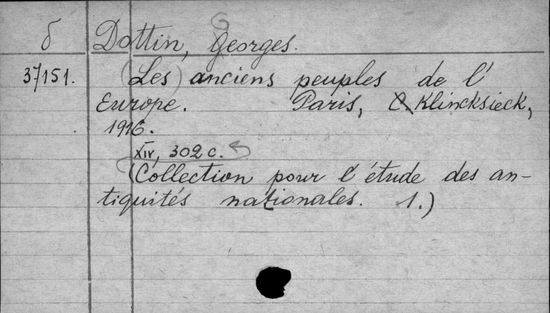 б Dottin, Georges.
37151. (Les) anciens peuples de l'
Europe. Paris, C. Klincksieck,
1916.
XIV, 302 c.
(Collection pour l'étude des an-
tiquités nationales. 1.)